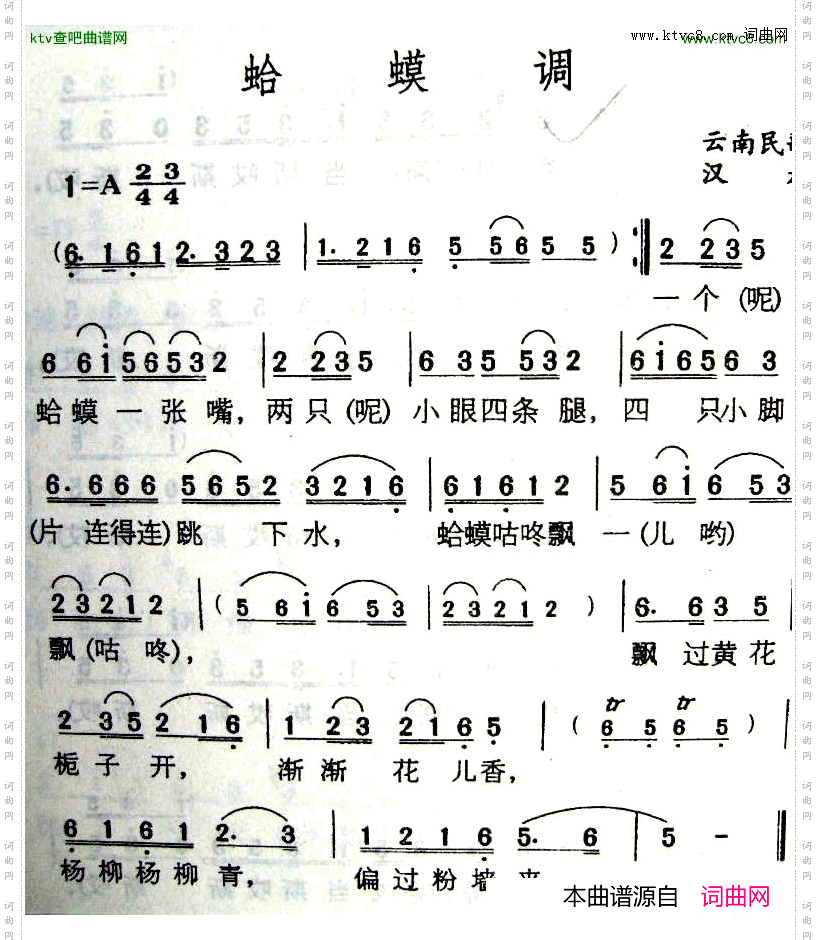 ktv查吧曲谱网
www.ktvc8.com 词曲网
www.ktvc8.com
蛤蟆调
云南民
汉
1=A 2/4 3/4
(6. 1 6 1 2. 3 2 3 | 1. 2 1 6 5 5 6 5 5 ) :| 2 2 3 5
一个(呢)
6 6 i 5 6 5 3 2 | 2 2 3 5 | 6 3 5 5 3 2 | 6 i 6 5 6 3
蛤蟆一张嘴，两只(呢)小眼四条腿，四 只小脚
6. 6 6 6 5 6 5 2 3 2 1 6 | 6 1 6 1 2 | 5 6 i 6 5 3
(片 连得连)跳 下水， 蛤蟆咕咚飘 一(儿 哟)
2 3 2 1 2 | ( 5 6 i 6 5 3 | 2 3 2 1 2 ) | 6. 6 3 5
飘(咕 咚)， 飘 过黄花
2 3 5 2 1 6 | 1 2 3 2 1 6 5 | ( 6 5 6 5 ) |
tr tr
栀子开， 渐渐 花 儿香，
6 1 6 1 2. 3 | 1 2 1 6 5. 6 | 5 -
杨柳杨柳青， 偏过粉墙
本曲谱源自 词曲网